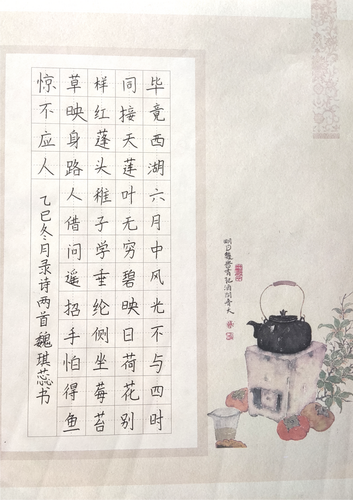 毕竟西湖六月中风光不与四时
同接天莲叶无穷碧映日荷花别
样红蓬头稚子学垂纶侧坐莓苔
草映身路人借问遥招手怕得鱼
惊不应人 乙巳冬月录诗两首魏琪蕊书